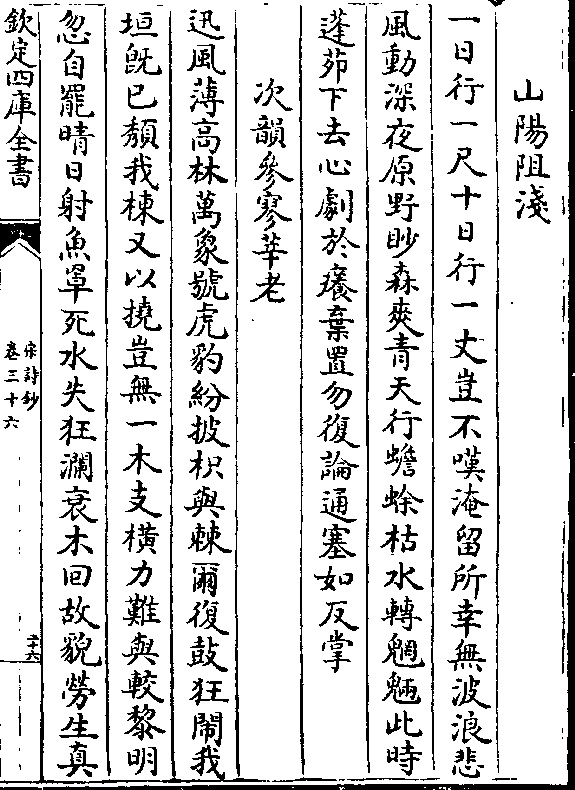 山陽阻淺
一日行一尺十日行一丈豈不嘆淹留所幸無波浪悲
風動深夜原野眇森爽青天行蟾蜍枯水轉魍魎此時
蓬茆下去心劇於癢棄置勿復論通塞如反掌
次韻參寥莘老
迅風薄高林萬象號虎豹紛披枳與棘爾復鼓狂鬧我
垣旣已頽我棟又以撓豈無一木支橫力難與較黎明
忽自罷晴日射魚罩死水失狂瀾衰木回故貌勞生真
欽定四庫全書
宋詩鈔
卷三十六
二十六